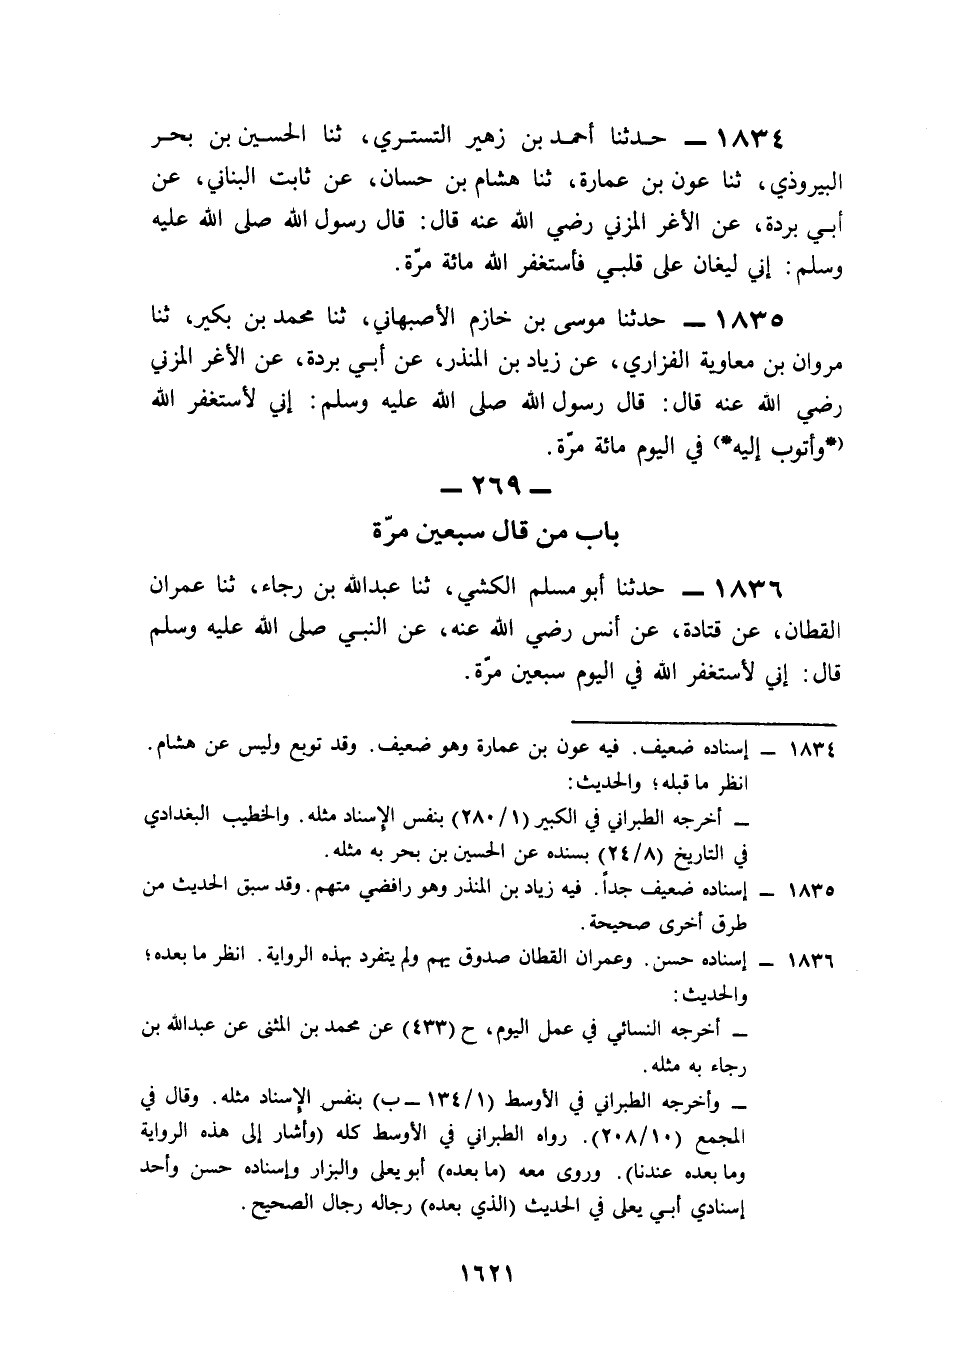 ١٨٣٤ — حدثنا أحمد بن زهير التستري، ثنا الحسين بن بحر
البيروذي، ثنا عون بن عمارة، ثنا هشام بن حسان، عن ثابت البناني، عن
أبي بردة، عن الأغر المزني رضي الله عنه قال: قال رسول الله صلى الله عليه
وسلم: إني ليغان على قلبي فأستغفر الله مائة مرّة.
١٨٣٥ — حدثنا موسى بن خازم الأصبهاني، ثنا محمد بن بكير، ثنا
مروان بن معاوية الفزاري، عن زياد بن المنذر، عن أبي بردة، عن الأغر المزني
رضي الله عنه قال: قال رسول الله صلى الله عليه وسلم: إني لأستغفر الله
(*وأتوب إليه*) في اليوم مائة مرّة.
— ٢٦٩ —
باب من قال سبعين مرّة
١٨٣٦ — حدثنا أبو مسلم الكشي، ثنا عبدالله بن رجاء، ثنا عمران
القطان، عن قتادة، عن أنس رضي الله عنه، عن النبي صلى الله عليه وسلم
قال: إني لأستغفر الله في اليوم سبعين مرّة.
١٨٣٤ — إسناده ضعيف. فيه عون بن عمارة وهو ضعيف. وقد توبع وليس عن هشام.
انظر ما قبله؛ والحديث:
— أخرجه الطبراني في الكبير (٢٨٠/١) بنفس الإسناد مثله. والخطيب البغدادي
في التاريخ (٢٤/٨) بسنده عن الحسين بن بحر به مثله.
١٨٣٥ — إسناده ضعيف جداً. فيه زياد بن المنذر وهو رافضي متهم. وقد سبق الحديث من
طرق أخرى صحيحة.
١٨٣٦ — إسناده حسن. وعمران القطان صدوق يهم ولم يتفرد بهذه الرواية. انظر ما بعده؛
والحديث:
— أخرجه النسائي في عمل اليوم، ح (٤٣٣) عن محمد بن المثنى عن عبدالله بن
رجاء به مثله.
— وأخرجه الطبراني في الأوسط (١٣٤/١ — ب) بنفس الإسناد مثله. وقال في
المجمع (٢٠٨/١٠). رواه الطبراني في الأوسط كله (وأشار إلى هذه الرواية
وما بعده عندنا). وروى معه (ما بعده) أبو يعلى والبزار وإسناده حسن وأحد
إسنادي أبي يعلى في الحديث (الذي بعده) رجاله رجال الصحيح.
١٦٢١